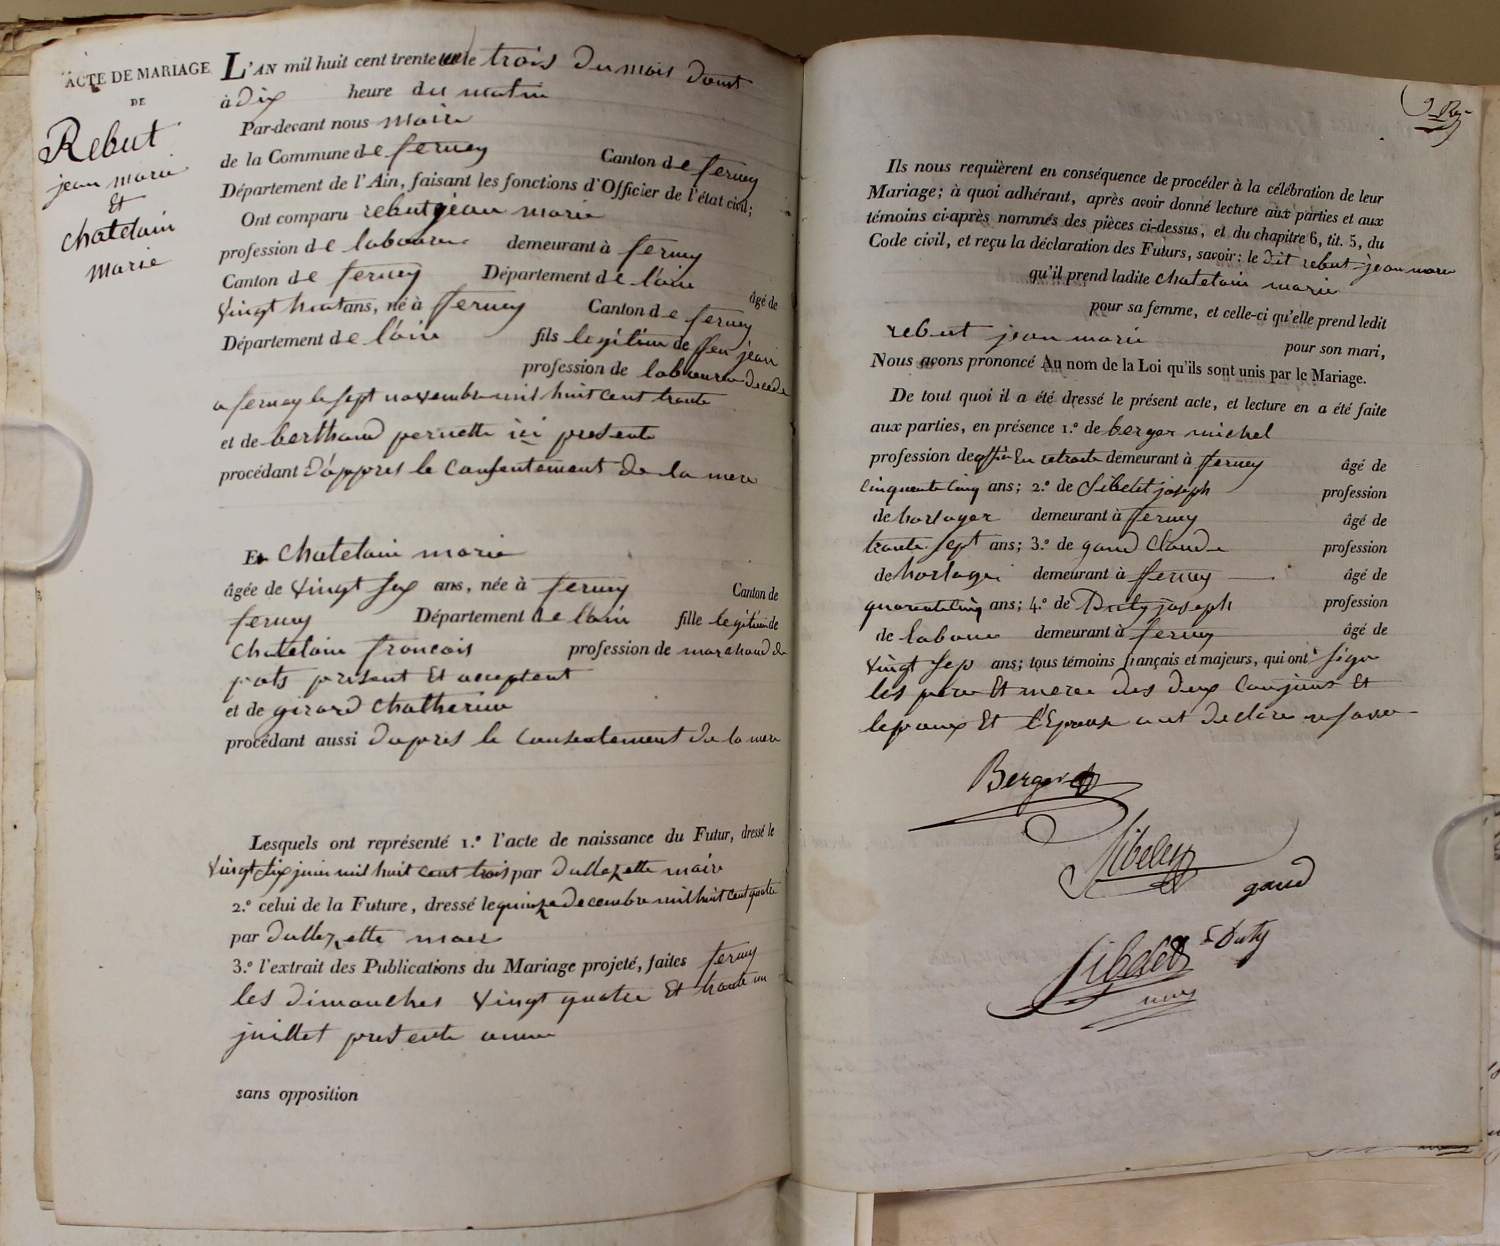 ACTE DE MARIAGE
DE
Rebut
jean marie
Et
chatelain
marie
L'AN mil huit cent trente un le trois du mois d'aout
à dix heure du matin
Par-devant nous maire
de la Commune de ferney Canton de ferney
Département de l'Ain, faisant les fonctions d'Officier de l'état civil;
Ont comparu rebut jean marie
profession de laboureur demeurant à ferney
Canton de ferney Département de l'ain âgé de
vingt huit ans, né à fferney Canton de ferney
Département de l'ain fils legitime de ffeu jean
profession de laboureur decede
a ferney le sept novembre mil huit cent trante
et de berthaud pernette ici presente
procédant d'appres le consentement de la mere
Et Chatelain marie
âgée de vingt six ans, née à ferney Canton de
ferney Département de l'ain fille legitime de
chatelain francois profession de marchand de
pots present Et acceptant
et de girard Chatherine
procédant aussi dapres le consentement de la mere
Lesquels ont représenté 1.º l'acte de naissance du Futur, dressé le
vingt six juin mil huit cent trois par Dallozette maire
2.º celui de la Future, dressé le quinze decembre mil huit cent quatre
par Dallozette maire
3.º l'extrait des Publications du Mariage projeté, faites ferney
les dimanches vingt quatre Et trante un
juillet presente annee
sans opposition
Ils nous requièrent en conséquence de procéder à la célébration de leur
Mariage; à quoi adhérant, après avoir donné lecture aux parties et aux
témoins ci-après nommés des pièces ci-dessus, et du chapitre 6, tit. 5, du
Code civil, et reçu la déclaration des Futurs, savoir: le dit rebut jean marie
qu'il prend ladite chatelain marie
pour sa femme, et celle-ci qu'elle prend ledit
rebut jean marie pour son mari,
Nous avons prononcé Au nom de la Loi qu'ils sont unis par le Mariage.
De tout quoi il a été dressé le présent acte, et lecture en a été faite
aux parties, en présence 1.º de berger michel
profession de En retraite demeurant à fferney âgé de
cinquante cinq ans; 2.º de Sibelet joseph profession
de horloger demeurant à fferney âgé de
trante sept ans; 3.º de gand Claude profession
de horloger demeurant à fferney âgé de
quarente cinq ans; 4.º de Duty joseph profession
de laboureur demeurant à ferney âgé de
vingt sep ans; tous témoins français et majeurs, qui ont signe
les pere Et mere des deux Conjoins Et
lepoux Et l'Epouse ont declare
Berger
Sibelet
gand
Duty
Sibelet